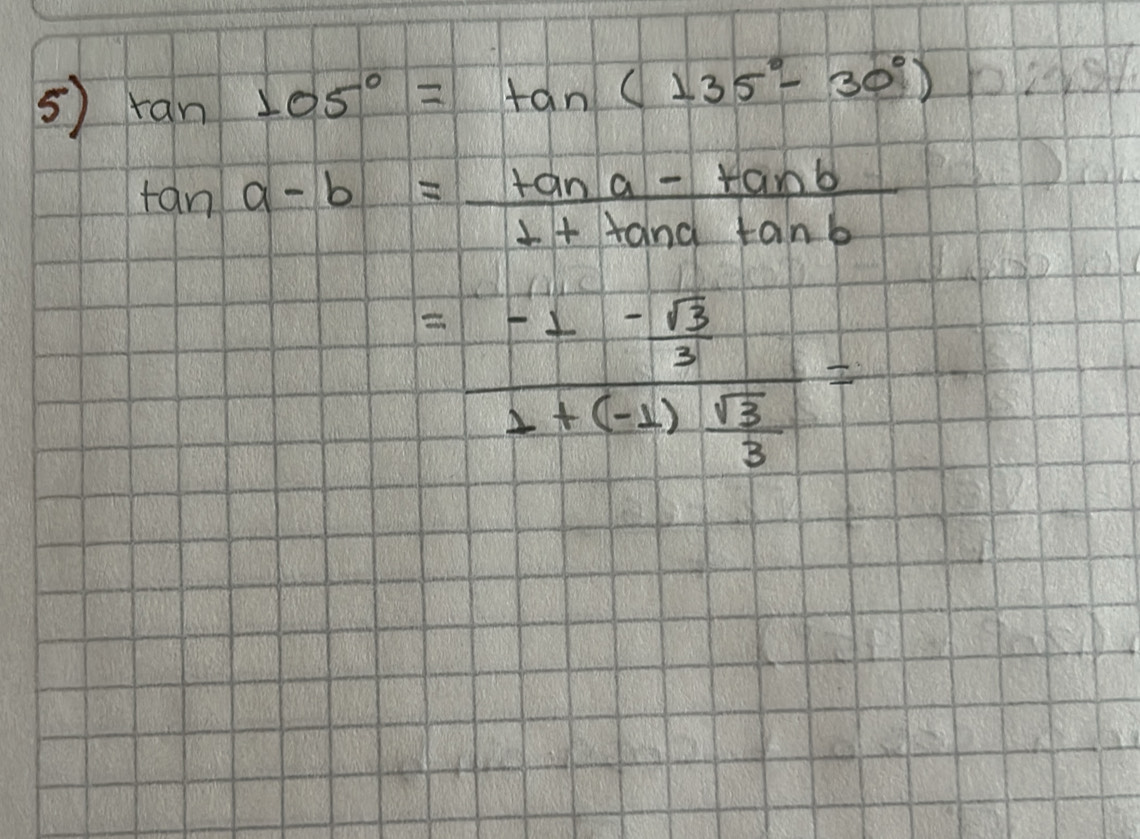 5) tan 105° = tan (135° - 30°)
tan a - b = tan a - tan b
1 + tan a tan b
= -1 - √3
3
=
1 + (-1) √3
3